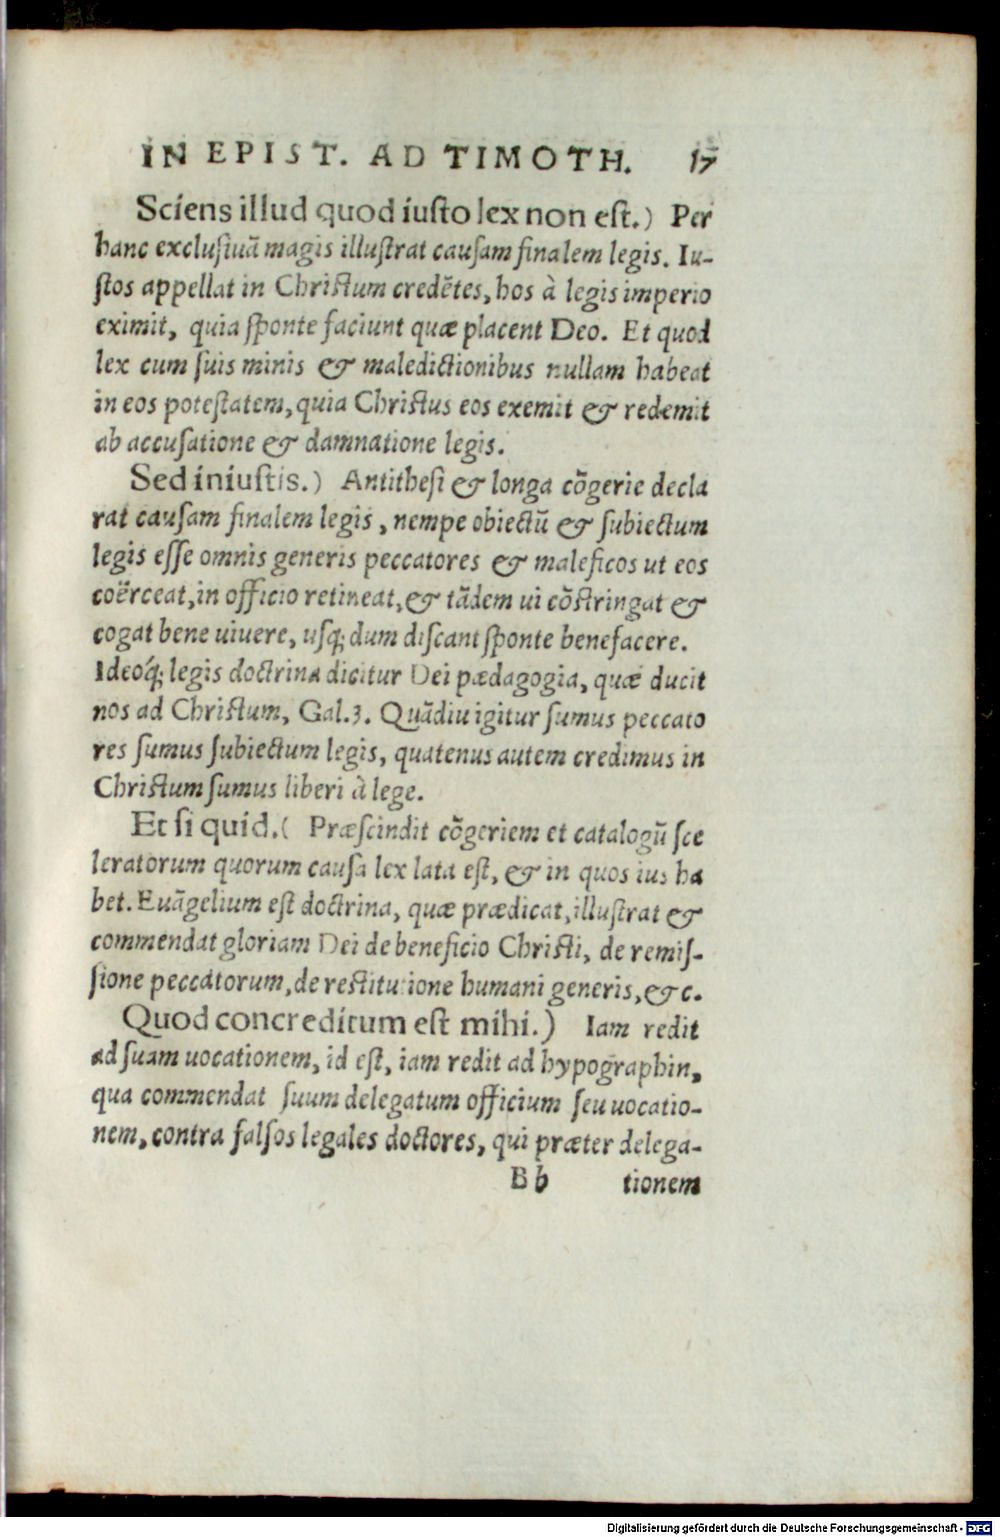 IN EPIST. AD TIMOTH. 17
Sciens illud quod iusto lex non est.) Per
hanc exclusiuã magis illustrat causam finalem legis. Iu-
stos appellat in Christum credẽtes, hos à legis imperio
eximit, quia sponte faciunt quæ placent Deo. Et quod
lex cum suis minis & maledictionibus nullam habeat
in eos potestatem, quia Christus eos exemit & redemit
ab accusatione & damnatione legis.
Sed iniustis.) Antithesi & longa cõgerie decla
rat causam finalem legis, nempe obiectũ & subiectum
legis esse omnis generis peccatores & maleficos ut eos
coërceat, in officio retineat, & tãdem ui cõstringat &
cogat bene uiuere, usq; dum discant sponte benefacere.
Ideoq́; legis doctrina dicitur Dei pædagogia, quæ ducit
nos ad Christum, Gal.3. Quãdiu igitur sumus peccato
res sumus subiectum legis, quatenus autem credimus in
Christum sumus liberi à lege.
Et si quid.( Præscindit cõgeriem et catalogũ sce
leratorum quorum causa lex lata est, & in quos ius ha
bet. Euãgelium est doctrina, quæ prædicat, illustrat &
commendat gloriam Dei de beneficio Christi, de remis-
sione peccatorum, de restitutione humani generis, &c.
Quod concreditum est mihi.) Iam redit
ad suam uocationem, id est, iam redit ad hypographin,
qua commendat suum delegatum officium seu uocatio-
nem, contra falsos legales doctores, qui præter delega-
Bb tionem
Digitalisierung gefördert durch die Deutsche Forschungsgemeinschaft - DFG